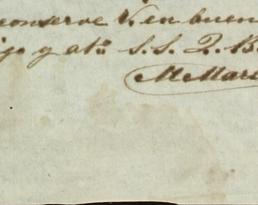 conserve V. en buen
igo y atto S. S. Q. B.
M Mar